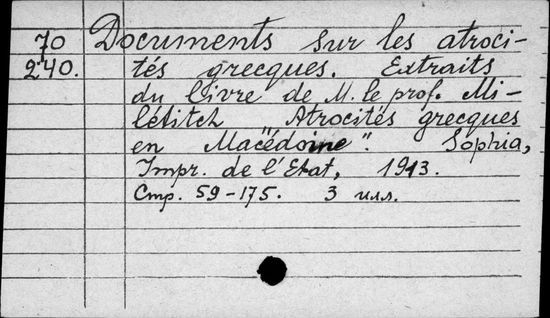 70 Documents sur les atroci-
240. tés grecques. Extraits
du livre de M. le prof. Mi-
létitch „Atrocités grecques
en Macédoine“. Sophia,
Impr. de l'Etat, 1913.
Стр. 59-175. 3 илл.